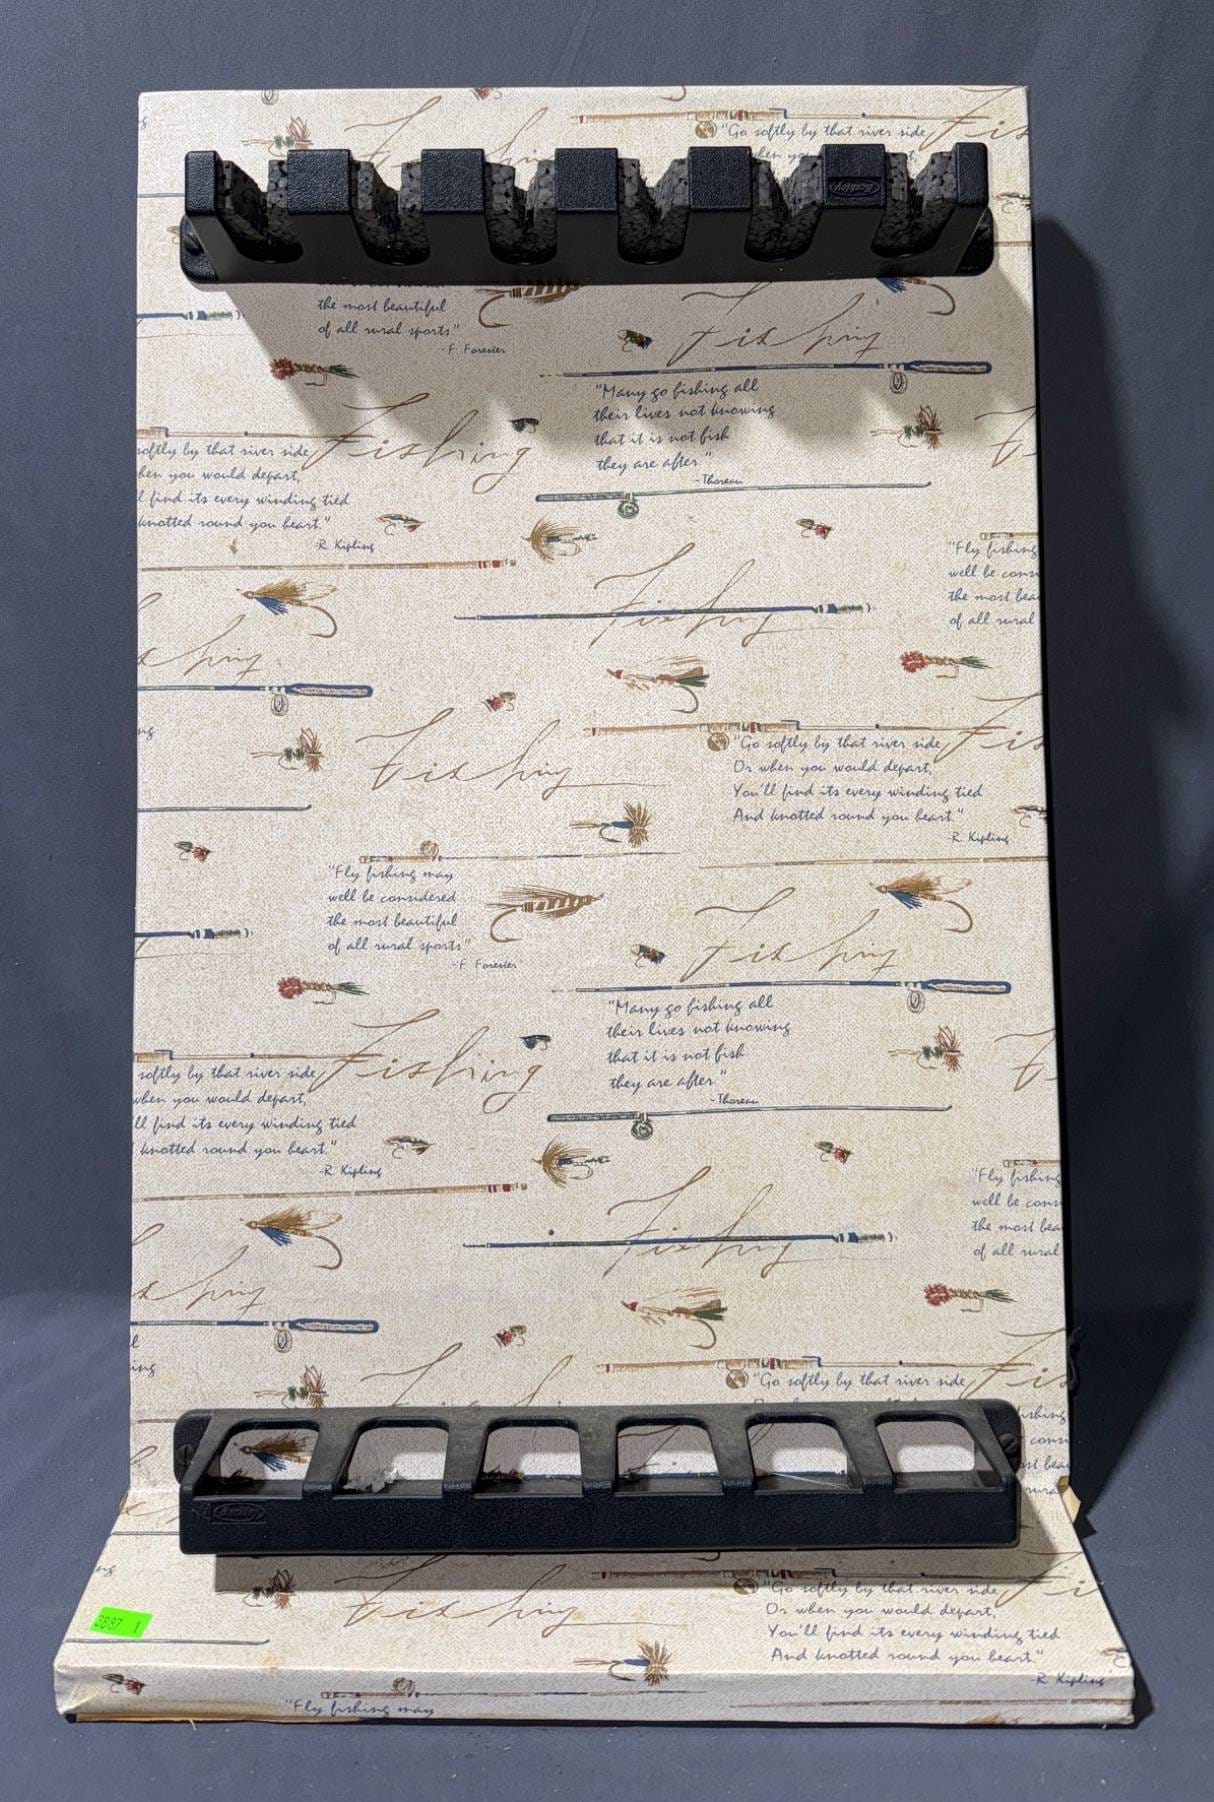 "Go softly by that river side
Fis
when you
Berkley
the most beautiful
of all rural sports"
-F Forester
Fishing
"Many go fishing all
their lives not knowing
that it is not fish
they are after."
-Thoreau
Fishing
softly by that river side
hen you would depart,
l find its every winding tied
knotted round you heart."
-R. Kipling
"Fly fishing
well be consi
the most bea
of all rural
Fishing
shing
ng
Fishing
Fis
"Go softly by that river side
Or when you would depart,
You'll find its every winding tied
And knotted round you heart."
-R. Kipling
"Fly fishing may
well be considered
the most beautiful
of all rural sports"
-F Forester
Fishing
"Many go fishing all
their lives not knowing
that it is not fish
they are after."
-Thoreau
Fishing
softly by that river side
when you would depart,
ll find its every winding tied
knotted round you heart."
-R. Kipling
"Fly fishing
well be consi
the most bea
of all rural
Fishing
shing
ing
Fis
"Go softly by that river side
ishing
cons
st bea
rura
Berkley
ng
Fishing
"Go softly by that river side
Or when you would depart,
You'll find its every winding tied
And knotted round you heart."
-R. Kipling
3887 1
"Fly fishing may